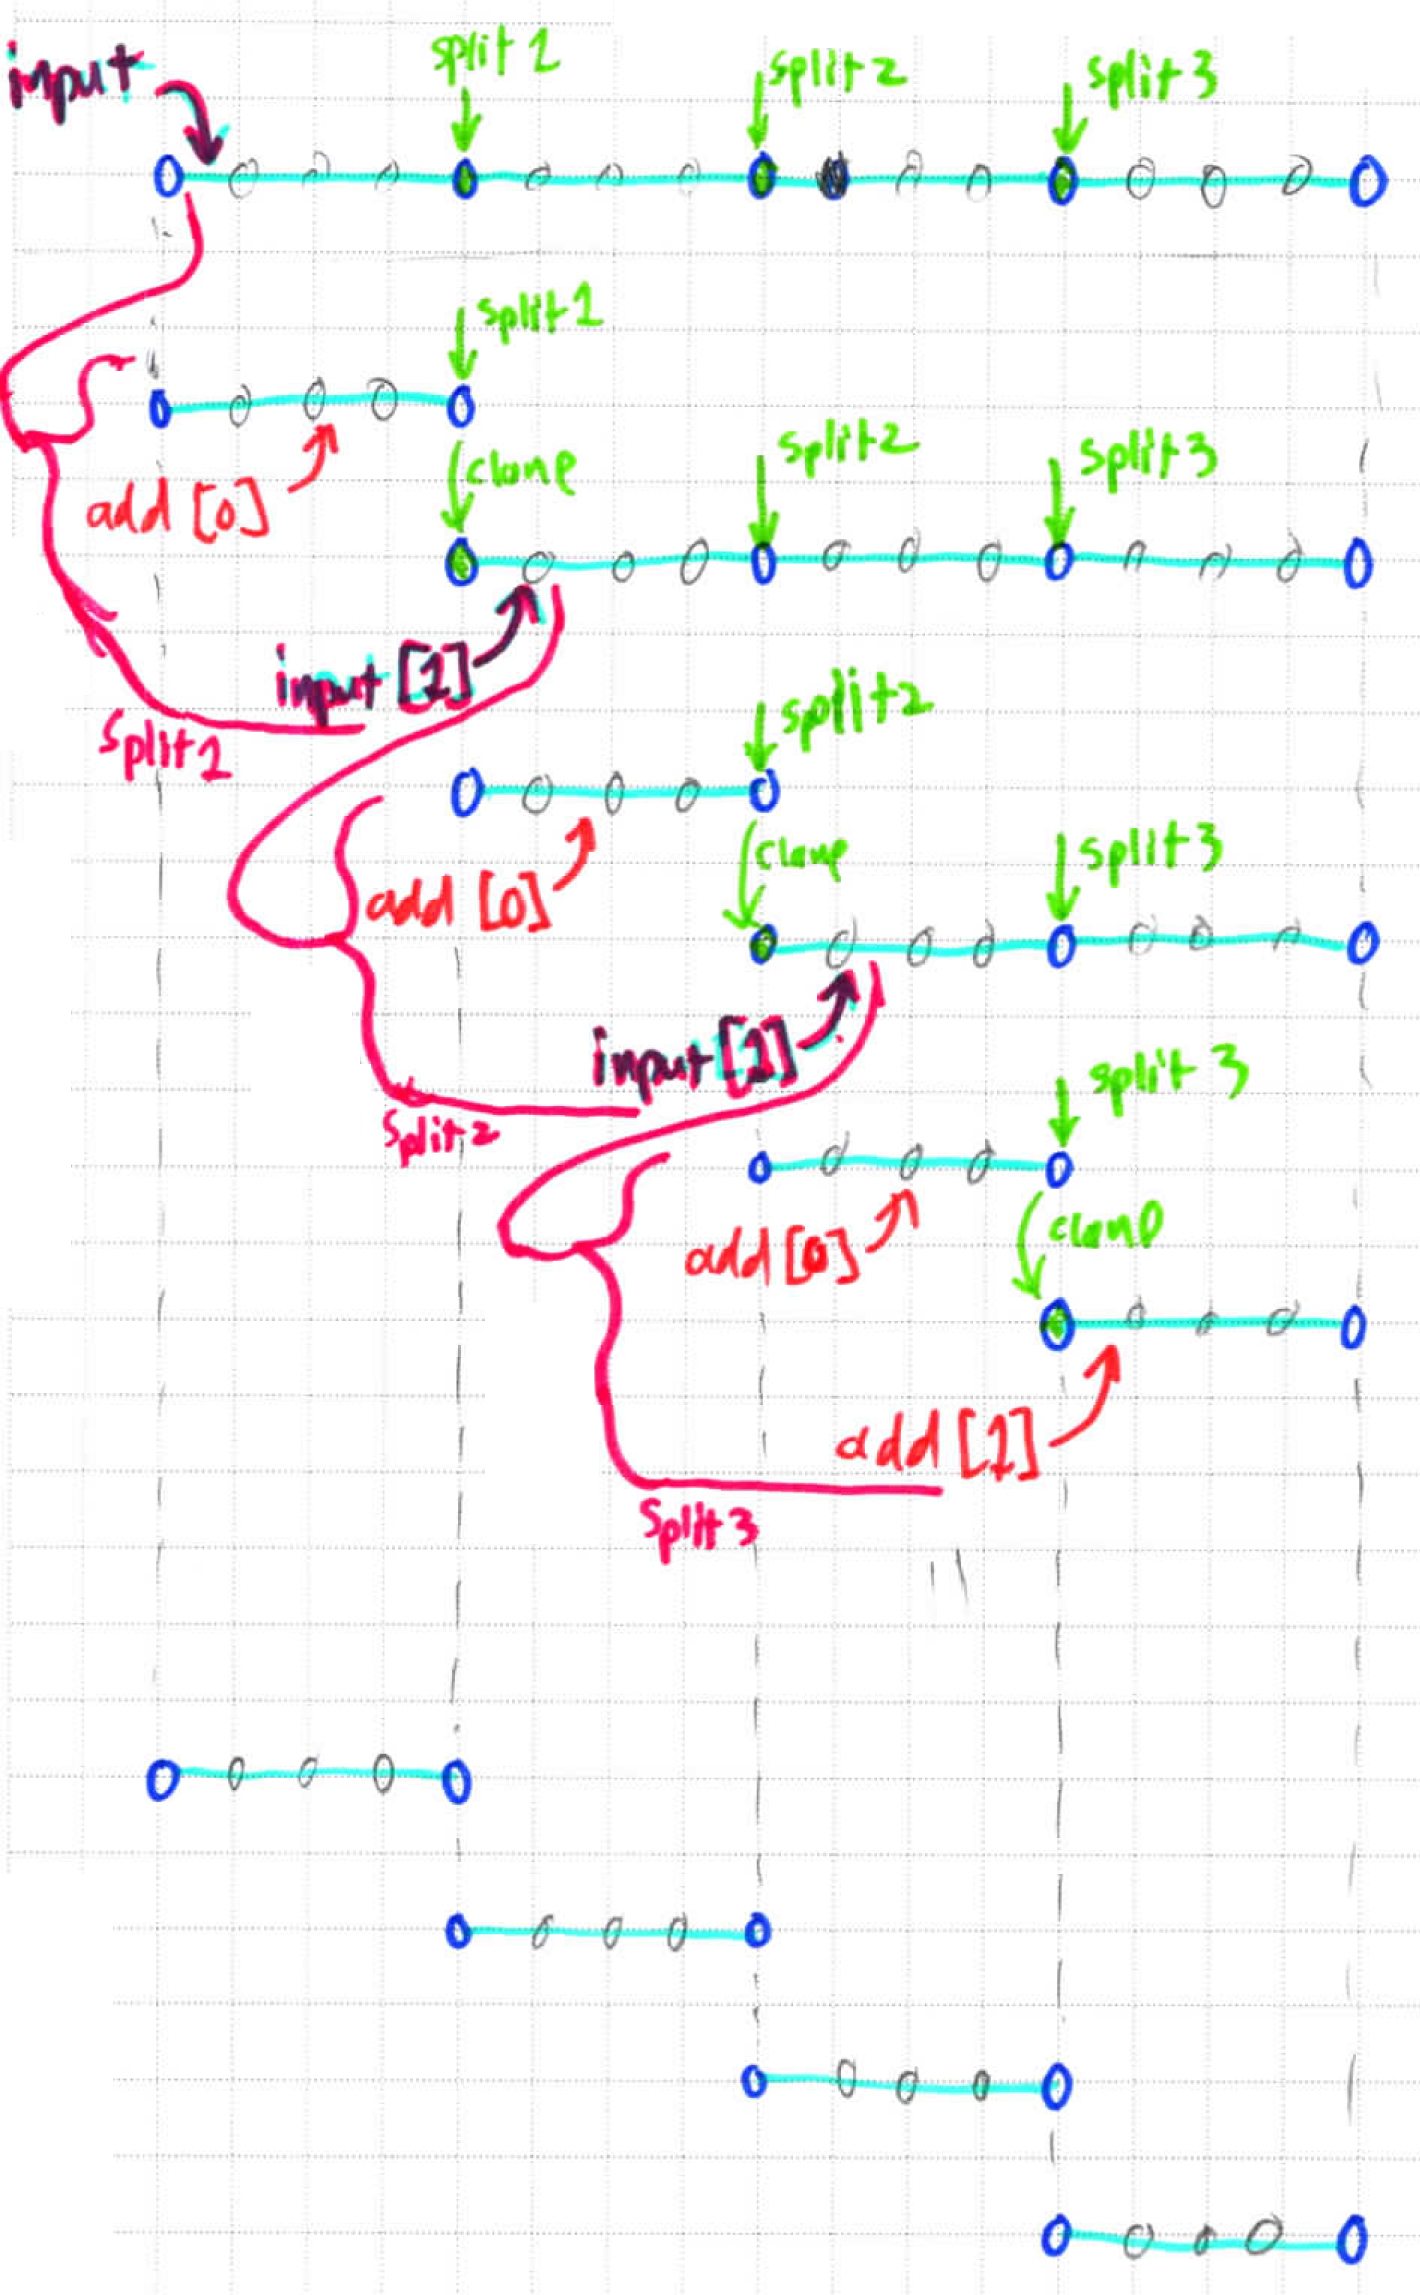 input
split 1
split 2
split 3
split 1
add [0]
clone
split 2
split 3
input [1]
split 1
split 2
add [0]
clone
split 3
input [1]
split 2
split 3
add [0]
clone
add [1]
split 3